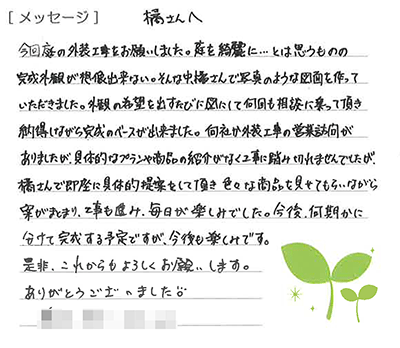 [メッセージ] 橘さんへ
今回庭の外装工事をお願いしました。庭を綺麗に…とは思うものの
完成外観が想像出来ない。そんな中橘さんで写真のような図面を作って
いただきました。外観の希望を出すたびに図にして何回も相談に乗って頂き
納得しながら完成のベースが出来ました。何社か外装工事の営業訪問が
ありましたが、具体的なプランや商品の紹介がなく工事に踏み切れませんでしたが、
橘さんで即座に具体的提案をして頂き色々な商品を見せてもらいながら
案がまとまり、工事も進み、毎日が楽しみでした。今後、何期かに
分けて完成する予定ですが、今後も楽しみです。
是非、これからもよろしくお願いします。
ありがとうございました